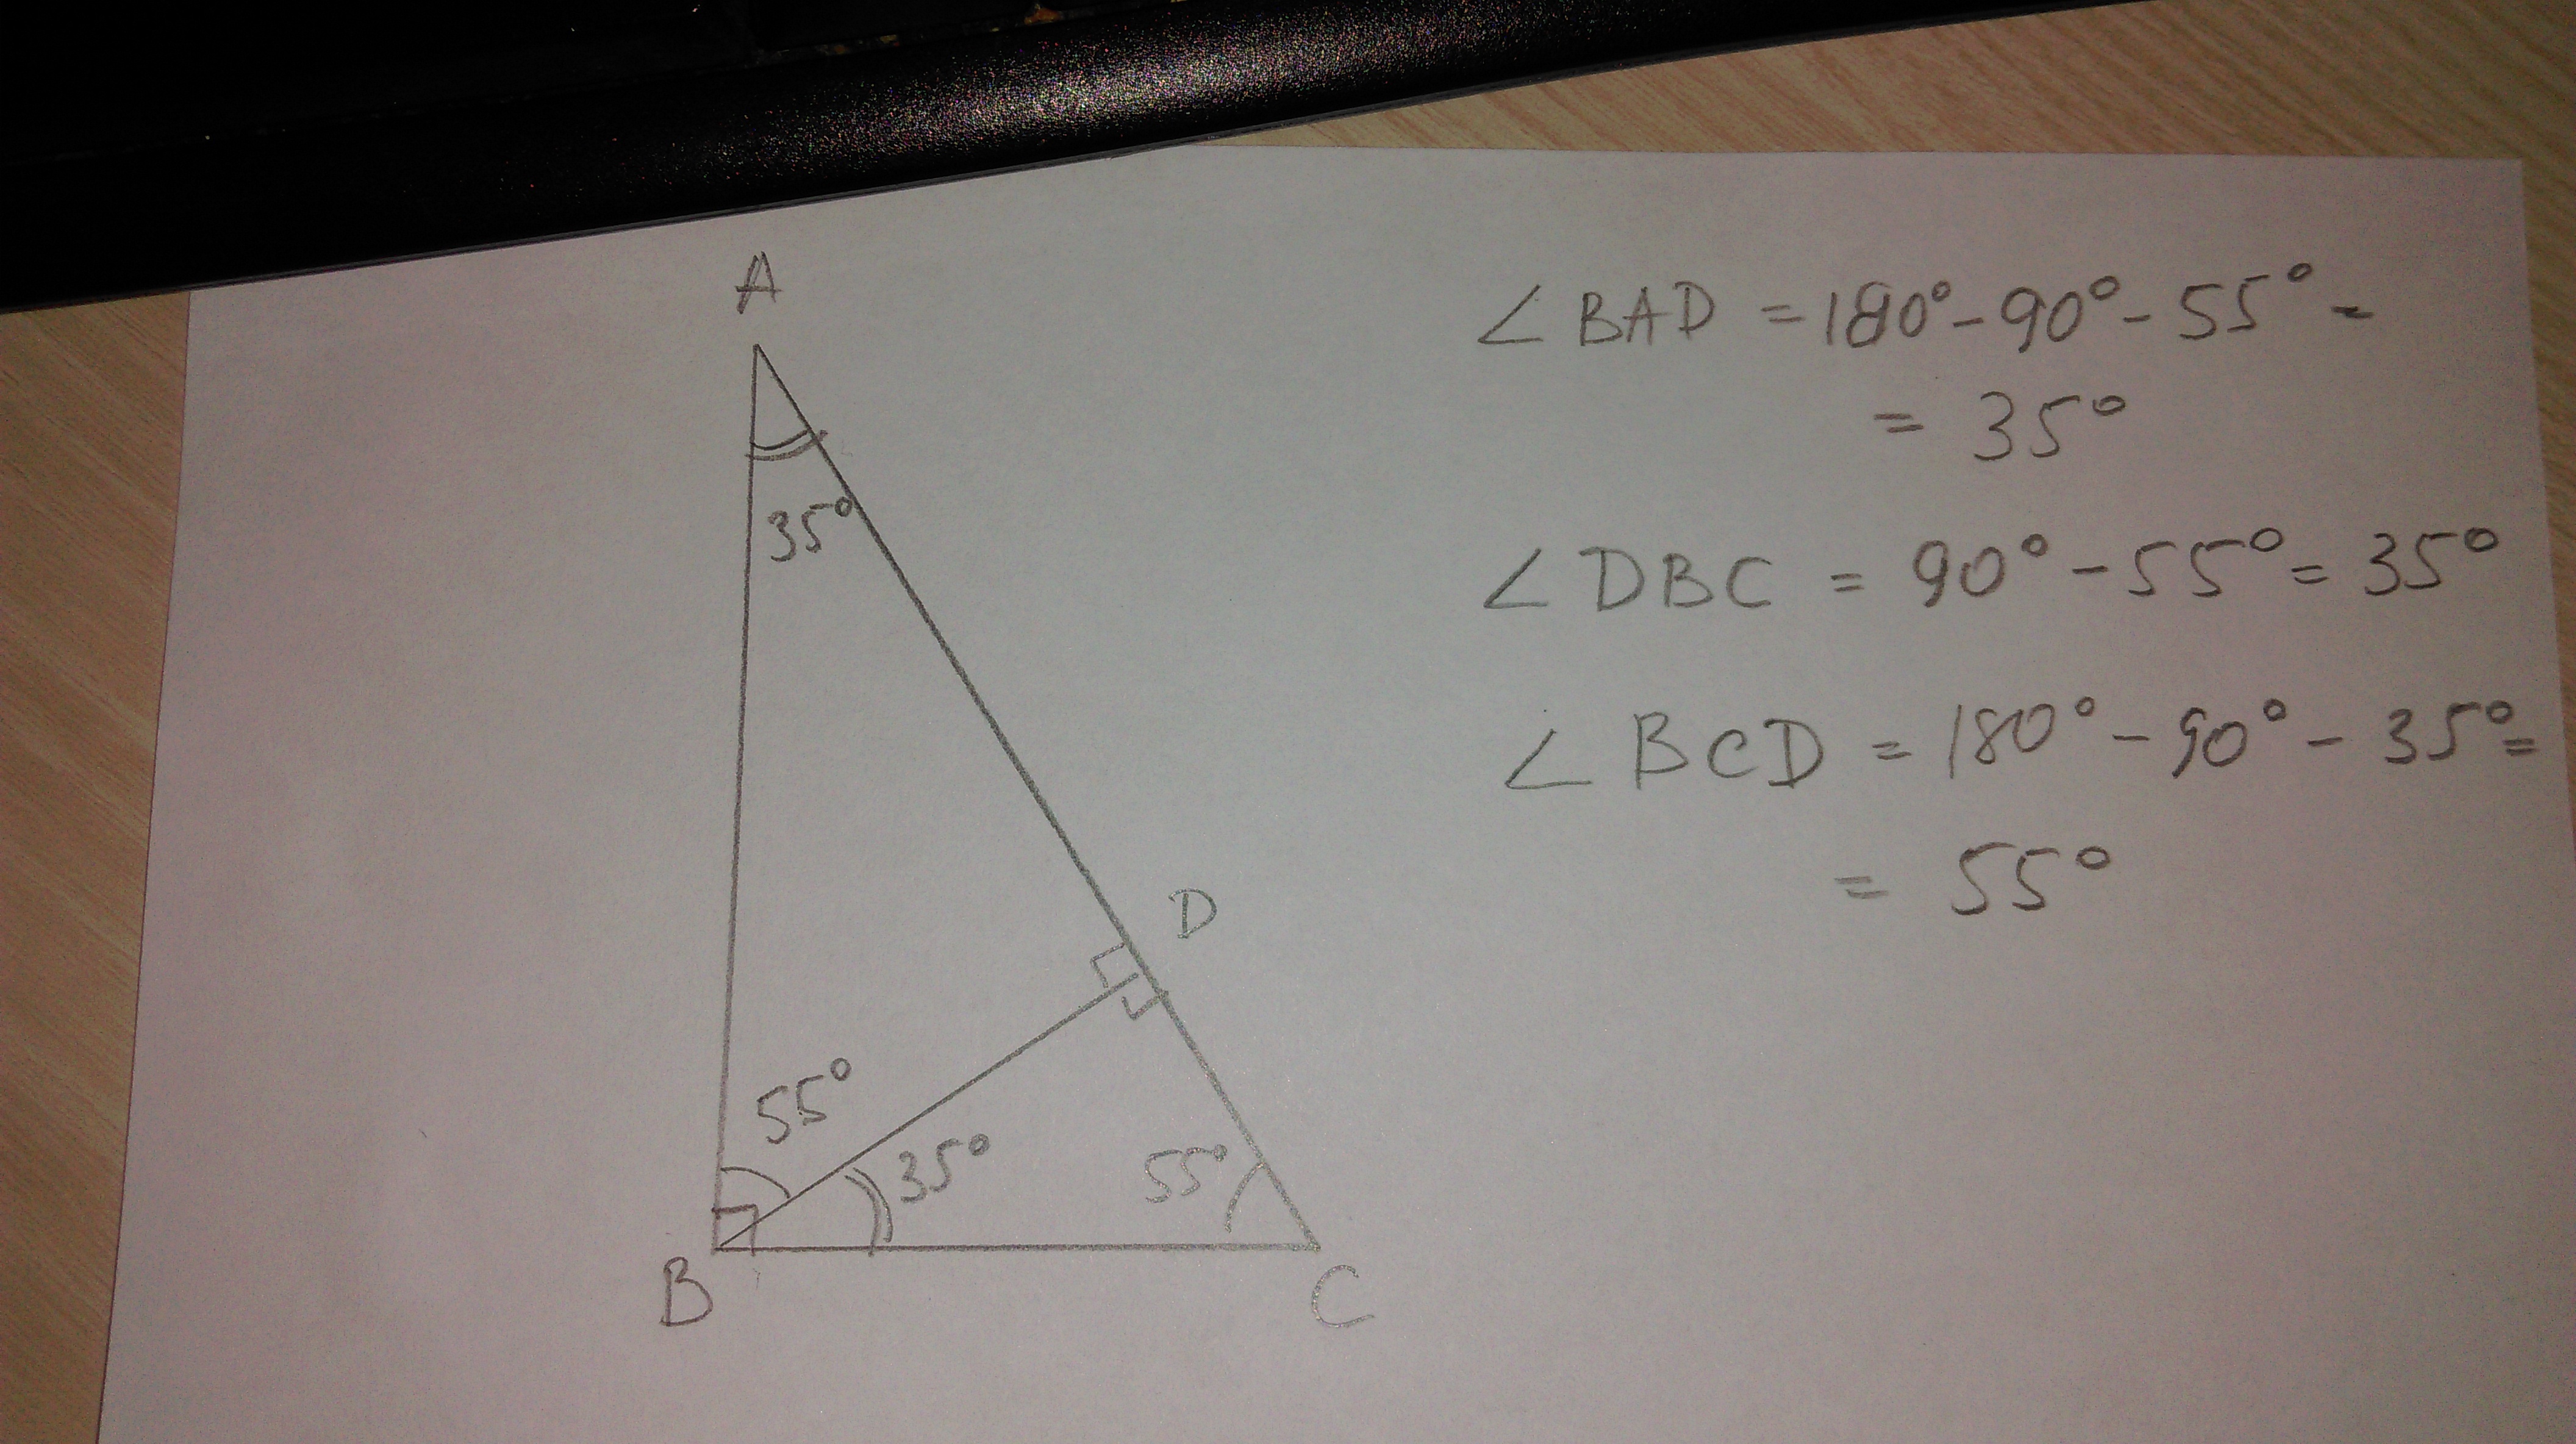 A
∠BAD = 180° - 90° - 55° =
= 35°
35°
∠DBC = 90° - 55° = 35°
∠BCD = 180° - 90° - 35° =
= 55°
D
55°
35°
55°
B
C